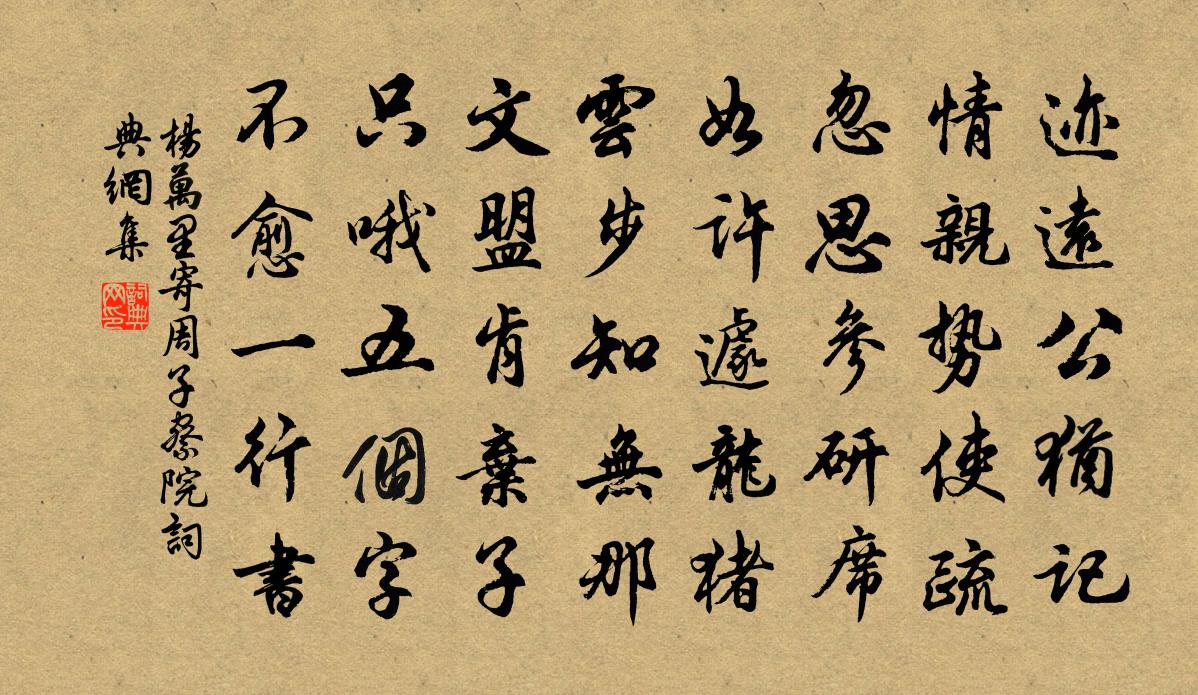 迹遠公猶記
情親勢使疏
忽思參研席
如許遽龍豬
雲步知無那
文盟肯棄子
只哦五個字
不愈一行書
楊萬里寄周子察院詞
典網集
詞典网印